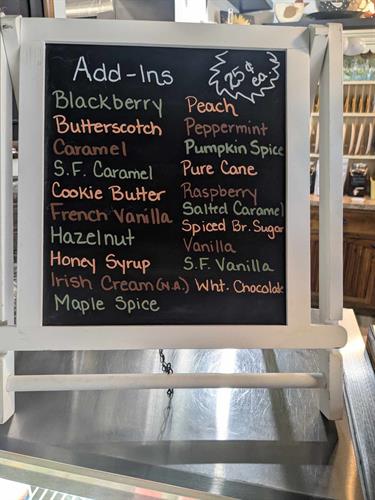 Add-Ins
25¢ ea.
Blackberry
Butterscotch
Caramel
S.F. Caramel
Cookie Butter
French Vanilla
Hazelnut
Honey Syrup
Irish Cream (N.A.)
Maple Spice
Peach
Peppermint
Pumpkin Spice
Pure Cane
Raspberry
Salted Caramel
Spiced Br. Sugar
Vanilla
S.F. Vanilla
Wht. Chocolate